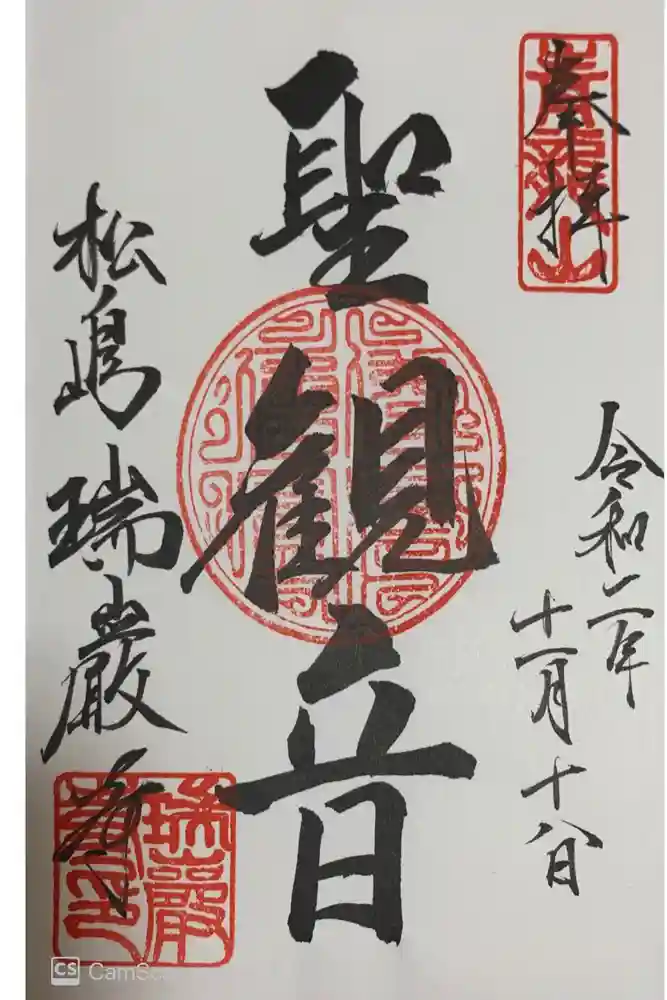 奉拝
青龍山
令和二年
十一月十八日
聖観音
松嶋瑞巌寺
瑞巌
CS CamSc